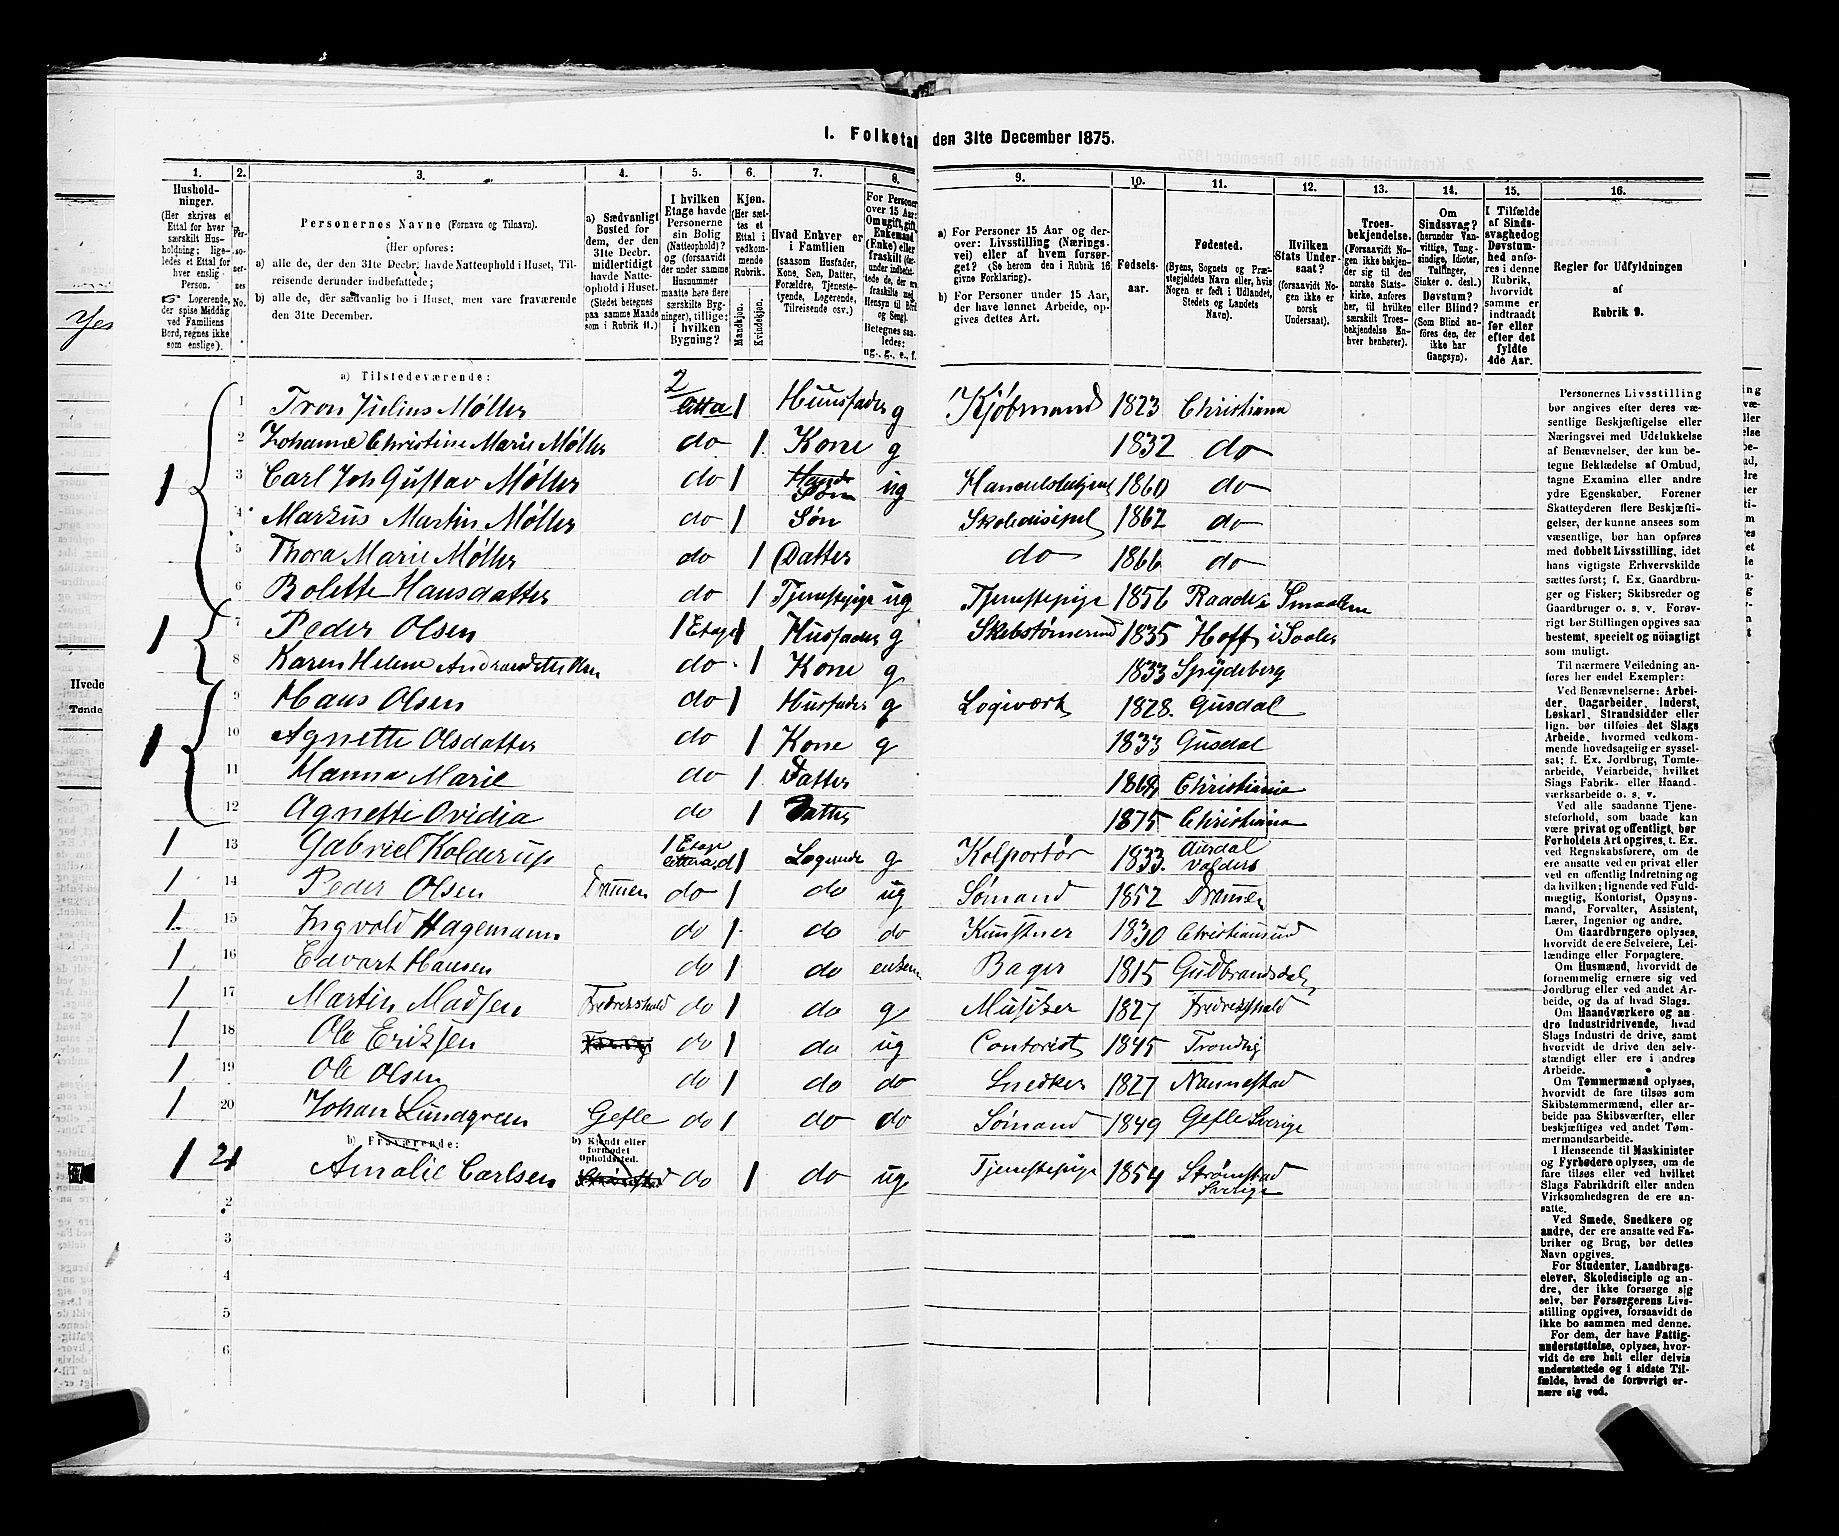 1. Folketal den 31te December 1875.
1. 2. 3. 4. 5. 6. 7. 8. 9. 10. 11. 12. 13. 14. 15. 16.
Husholdninger. (Her skrives et Ettal for hver særskilt Husholdning; ligeledes et Ettal for hver enslig Person. ☞ Logerende, der spise Middag ved Familiens Bord, regnes ikke som enslige).
Personernes No.
Personernes Navne (Fornavn og Tilnavn).
(Her opføres:
a) alle de, der den 31te Decbr. havde Natteophold i Huset, Tilreisende derunder indbefattede;
b) alle de, der sædvanlig bo i Huset, men vare fraværende den 31te December.
a) Sædvanligt Bosted for dem, der den 31te Decbr. midlertidigt havde Natteophold i Huset. (Stedet betegnes paa samme Maade som i Rubrik 11.)
I hvilken Etage havde Personerne sin Bolig (Natteophold)? og (forsaavidt der under samme Husnummer maatte høre flere særskilte Bygninger), tillige: i hvilken Bygning?
Kjøn. (Her sættes et Ettal i vedkommende Rubrik. Mandkjøn. Kvindekjøn.
Hvad Enhver er i Familien (saasom Husfader, Kone, Søn, Datter, Forældre, Tjenestetyende, Logerende, Tilreisende osv.)
For Personer over 15 Aar: Om ugift, gift, Enkemand (Enke) eller fraskilt
Betegnes saaledes: ug., g., e., f.
a) For Personer 15 Aar og derover: Livsstilling (Næringsvei) eller af hvem forsørget? (Se herom den i Rubrik 16 givne Forklaring).
b) For Personer under 15 Aar, der have lønnet Arbeide, opgives dettes Art.
Fødselsaar.
Fødested. (Byens, Sognets og Præstegjeldets Navn eller, hvis Nogen er født i Udlandet, Stedets og Landets Navn).
Hvilken Stats Undersaat? (forsaavidt Nogen ikke er norsk Undersaat).
Troesbekjendelse. (Forsaavidt Nogen ikke bekjender sig til den norske Statskirke, anføres her, til hvilken særskilt Troesbekjendelse Enhver henhører).
Om Sindssvag? (herunder Vanvittige, Tungsindige, Idioter, Tullinger, Sinker o. desl.) Døvstum? eller Blind? (Som Blind anføres den, der ikke har Gangsyn).
I Tilfælde af Sindssvaghed og Døvstumhed anføres i denne Rubrik, hvorvidt samme er indtraadt før eller efter det fyldte 4de Aar.
Regler for Udfyldningen af Rubrik 9.
a) Tilstedeværende:
1 Tron Julius Møller 2 Etta 1 Huusfader g Kjøbmand 1823 Christiania
2 Johanne Christine Marie Møller do 1 Kone g 1832 do
1 3 Carl Joh Gustav Møller do 1 Søn ug Handelsbetjent 1860 do
4 Markus Martin Møller do 1 Søn Skoledisipel 1862 do
5 Thora Marie Møller do 1 Datter do 1866 do
6 Bolette Hansdatter do 1 Tjenestepige ug Tjenestepige 1856 Raade i Smaalene
1 7 Peder Olsen 1 Etage 1 Husfader g Skibstømermd 1835 Hoff i Soolør
8 Karen Helene do 1 Kone g 1833 Spydeberg
9 Hans Olsen do 1 Husfader g Logivært 1828 Gusdal
1 10 Agnette Olsdatter do 1 Kone g 1833 Gusdal
11 Hanna Marie do 1 Datter 1868 Christiania
12 Agnette Ovidia do 1 Datter 1875 Christiania
1 13 Gabriel Kolderup 1 Etage 1 Logerende g Kolportør 1833 Aurdal Valders
1 14 Peder Olsen Dramen do 1 do ug Sømand 1852 Dramen
1 15 Ingvold Hagemann do 1 do do Kunstner 1830 Christiansund
1 16 Edvart Hansen do 1 do enkem Bager 1815 Gudbrandsdalen
1 17 Martin Madsen Fredrekshald do 1 do g Musiker 1827 Fredrekshald
1 18 Ole Eriksen do 1 do ug Contorist 1845 Trondhj
1 19 Ole Olsen do 1 do do Snedker 1827 Nannestad
1 20 Johan Lundgreen Gefle do 1 do do Sømand 1849 Gefle Sverige
b) Fraværende: b) Kjendt eller formodet Opholdssted.
1 21 Amalie Carlsen do 1 do ug Tjenestepige 1854 Strømstad Sverige
2
3
4
5
6
Personernes Livsstilling bør angives efter deres væsentlige Beskjæftigelse eller Næringsvei med Udelukkelse af Benævnelser, der kun betegne Beklædelse af Ombud, tagne Examina eller andre ydre Egenskaber. Forener Skatteyderen flere Beskjæftigelser, der kunne ansees som væsentlige, bør han opføres med dobbelt Livsstilling, idet hans vigtigste Erhvervskilde sættes først; f. Ex. Gaardbruger og Fisker; Skibsreder og Gaardbruger o. s. v. Forøvrigt bør Stillingen opgives saa bestemt, specielt og nöiagtigt som muligt.
Til nærmere Veiledning anføres her endel Exempler:
Ved Benævnelserne: Arbeider, Dagarbeider, Inderst, Løskarl, Strandsidder eller lign. bør tilføies det Slags Arbeide, hvormed vedkommende hovedsagelig er sysselsat; f. Ex. Jordbrug, Tomtearbeide, Veiarbeide, hvilket Slags Fabrik- eller Haandværksarbeide o. s. v.
Ved alle saadanne Tjenesteforhold, som baade kan være privat og offentligt, bør Forholdets Art opgives, t. Ex. ved Regnskabsførere, om de ere ansatte ved en privat eller ved en offentlig Indretning og da hvilken; lignende ved Fuldmægtig, Kontorist, Opsynsmand, Forvalter, Assistent, Lærer, Ingeniør og andre.
Om Gaardbrugere oplyses, hvorvidt de ere Selveiere, Leilændinge eller Forpagtere.
Om Husmænd, hvorvidt de fornemmelig ernære sig ved Jordbrug eller ved andet Arbeide, og da af hvad Slags.
Om Haandværkere og andre Industridrivende, hvad Slags Industri de drive, samt hvorvidt de drive den selvstændigt eller ere i andres Arbeide.
Om Tømmermænd oplyses, hvorvidt de fare tilsøs som Skibstømmermænd, eller arbeide paa Skibsværfter, eller beskjæftiges ved andet Tømmermandsarbeide.
I Henseende til Maskinister og Fyrbødere oplyses, om de fare tilsøs eller ved hvilket Slags Fabrikdrift eller anden Virksomhedsgren de ere ansatte.
Ved Smede, Snedkere og andre, der ere ansatte ved Fabriker og Brug, bør dettes Navn opgives.
For Studenter, Landbrugselever, Skoledisciple og andre, der ikke forsørge sig selv, bør Forsørgerens Livsstilling opgives, forsaavidt de ikke bo sammen med denne.
For dem, der have Fattigunderstøttelse, oplyses, hvorvidt de ere helt eller delvis understøttede og i sidste Tilfælde, hvad de forøvrigt ernære sig ved.